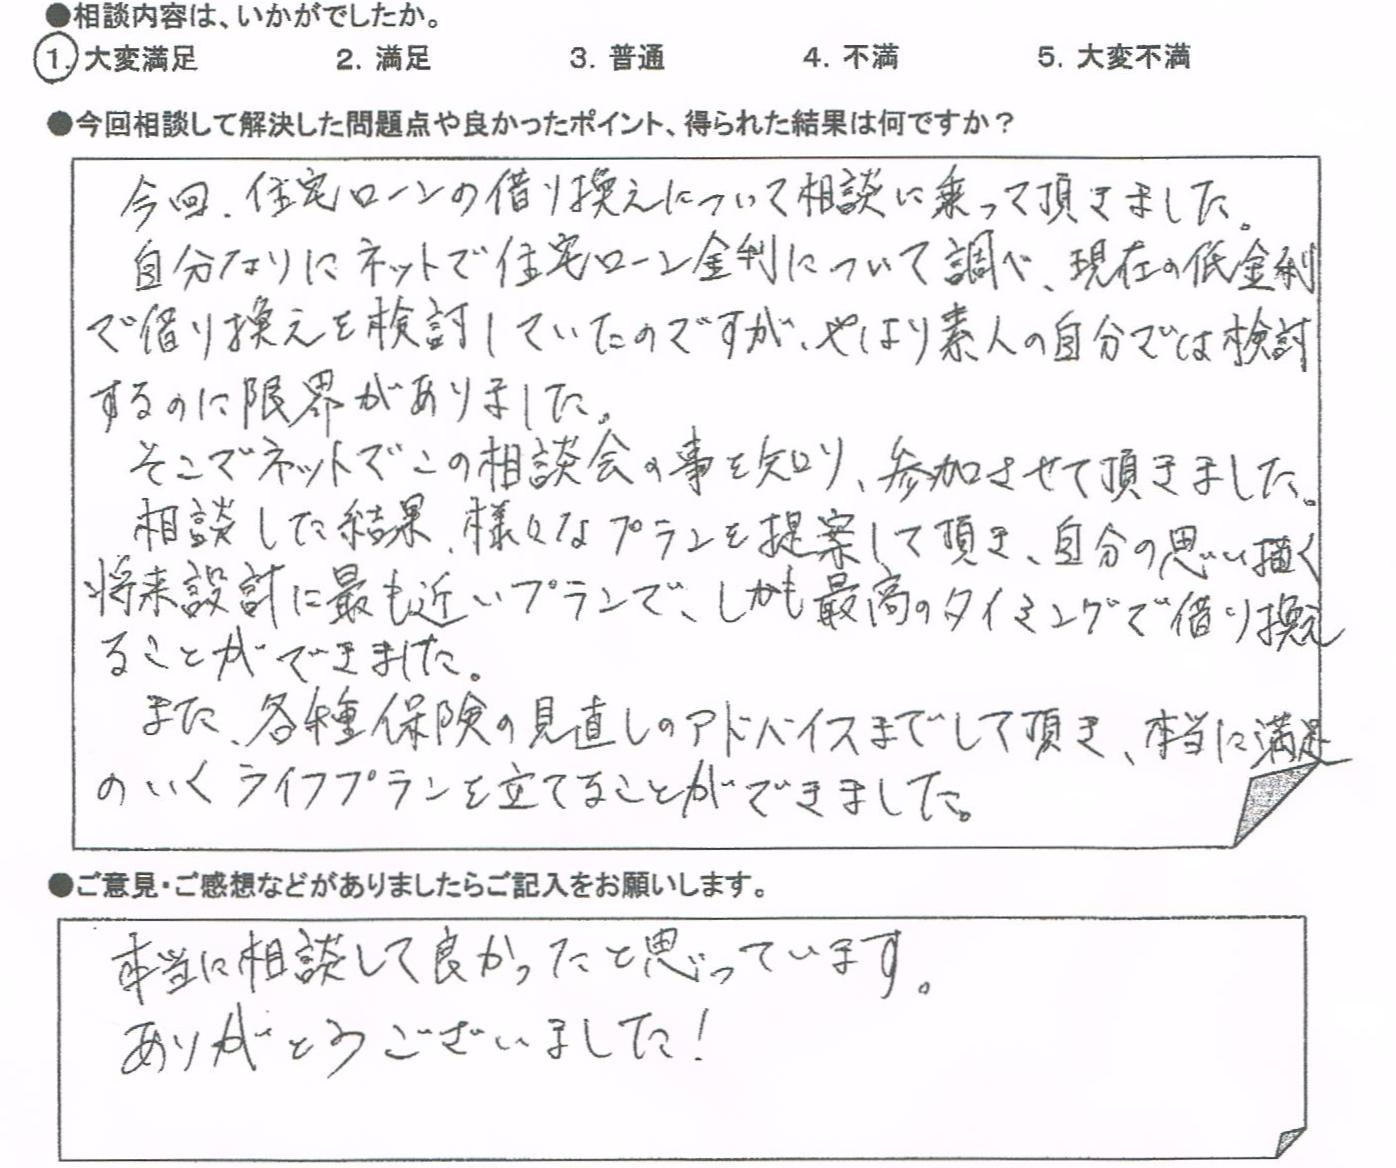 ●相談内容は、いかがでしたか。
1. 大変満足 2. 満足 3. 普通 4. 不満 5. 大変不満
●今回相談して解決した問題点や良かったポイント、得られた結果は何ですか？
今回、住宅ローンの借り換えについて相談に乗って頂きました。
自分なりにネットで住宅ローン金利について調べ、現在の低金利
で借り換えを検討していたのですが、やはり素人の自分では検討
するのに限界がありました。
そこでネットでこの相談会の事を知り、参加させて頂きました。
相談した結果、様々なプランを提案して頂き、自分の思い描く
将来設計に最も近いプランで、しかも最高のタイミングで借り換え
ることができました。
また、各種保険の見直しのアドバイスまでして頂き、本当に満足
のいくライフプランを立てることができました。
●ご意見・ご感想などがありましたらご記入をお願いします。
本当に相談して良かったと思っています。
ありがとうございました！